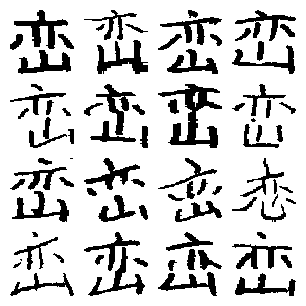 峦峦峦峦
峦峦峦峦
峦峦峦恋
峦峦峦峦